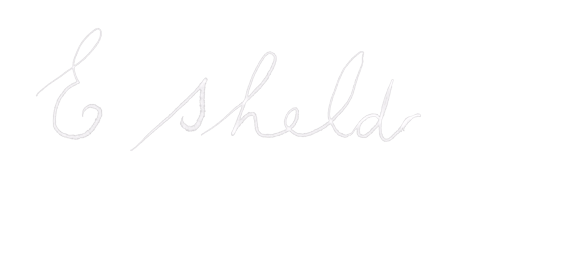 E sheldr